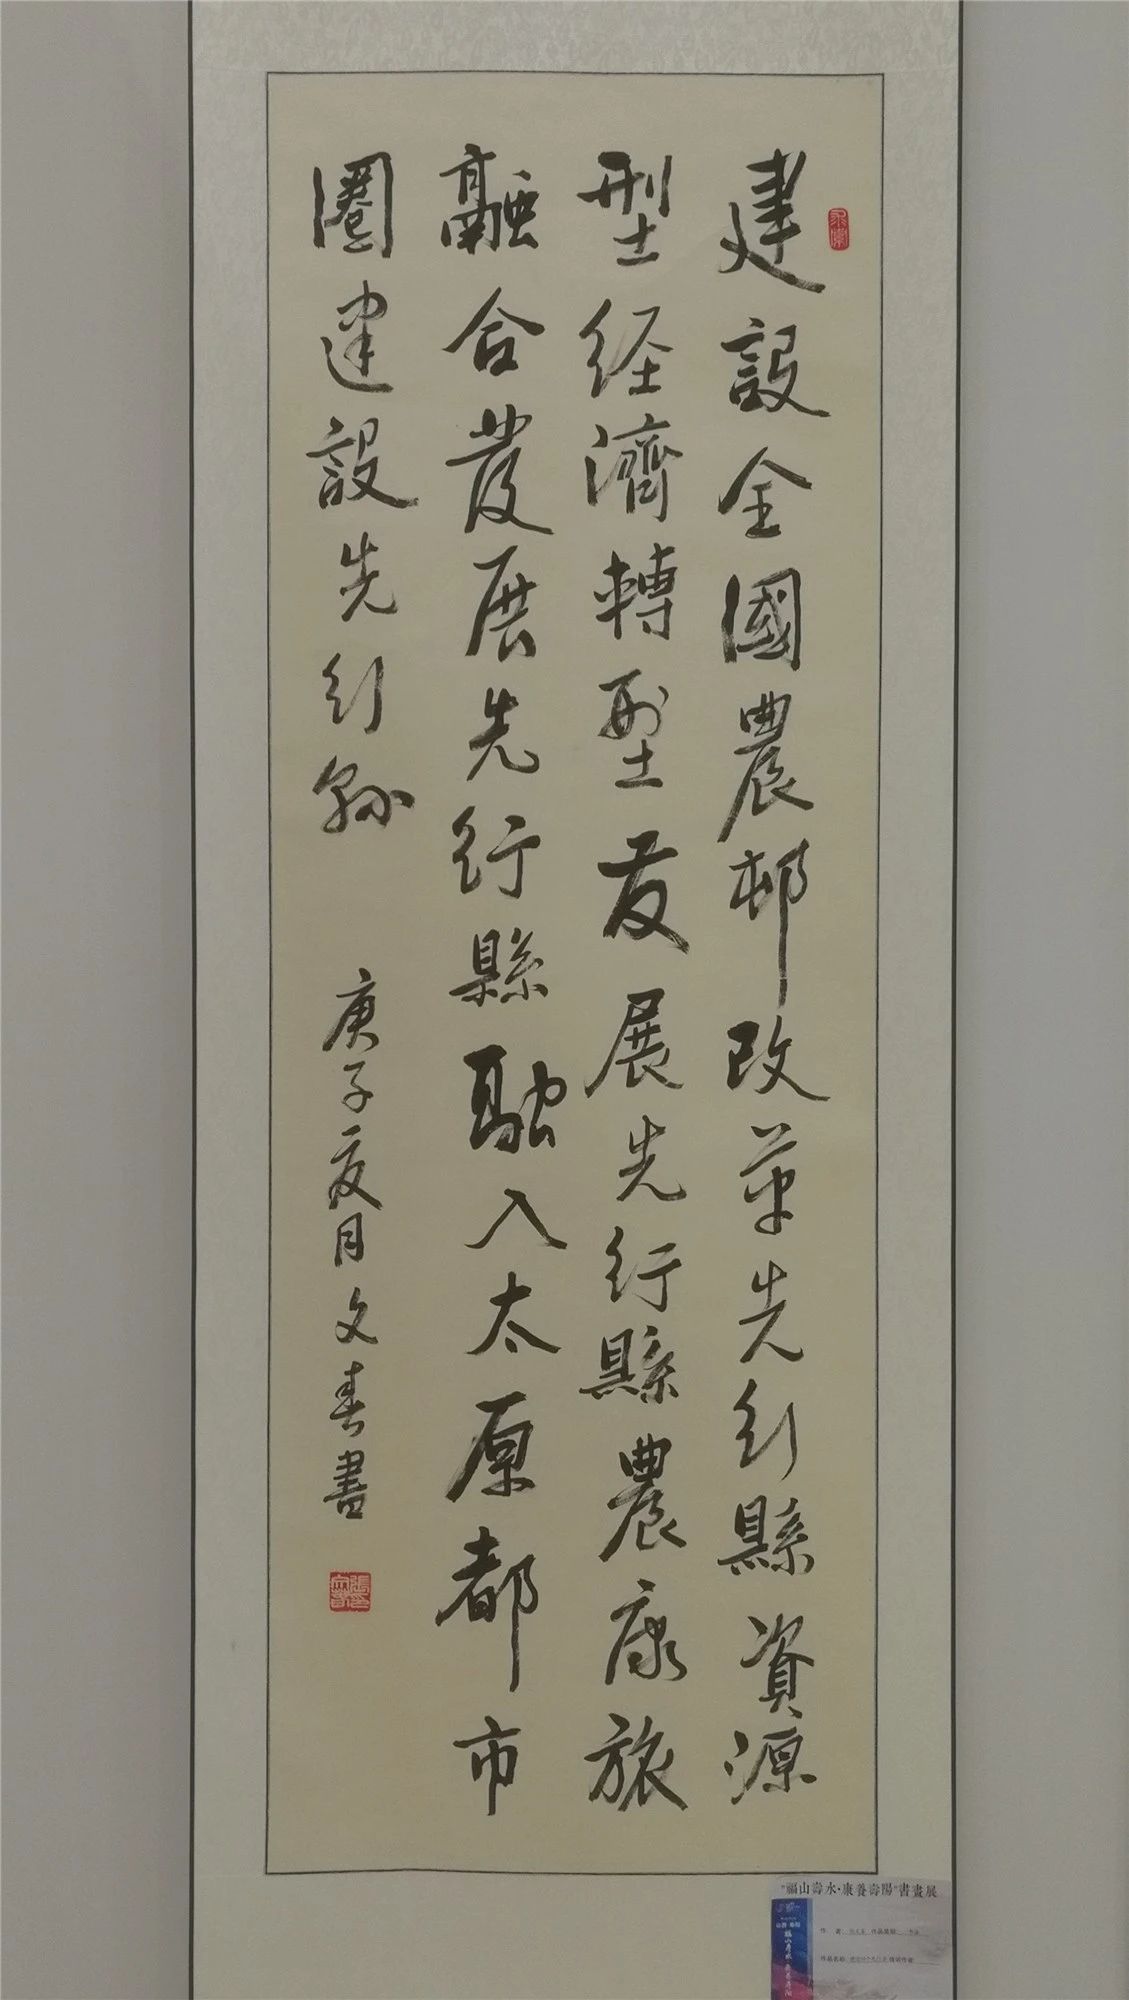 建設全國農邨改革先行縣資源
型经濟轉型发展先行縣農康旅
融合發展先行縣融入太原都市
圈建設先行縣
庚子夏月文春書
"福山壽水·康養壽陽"書畫展